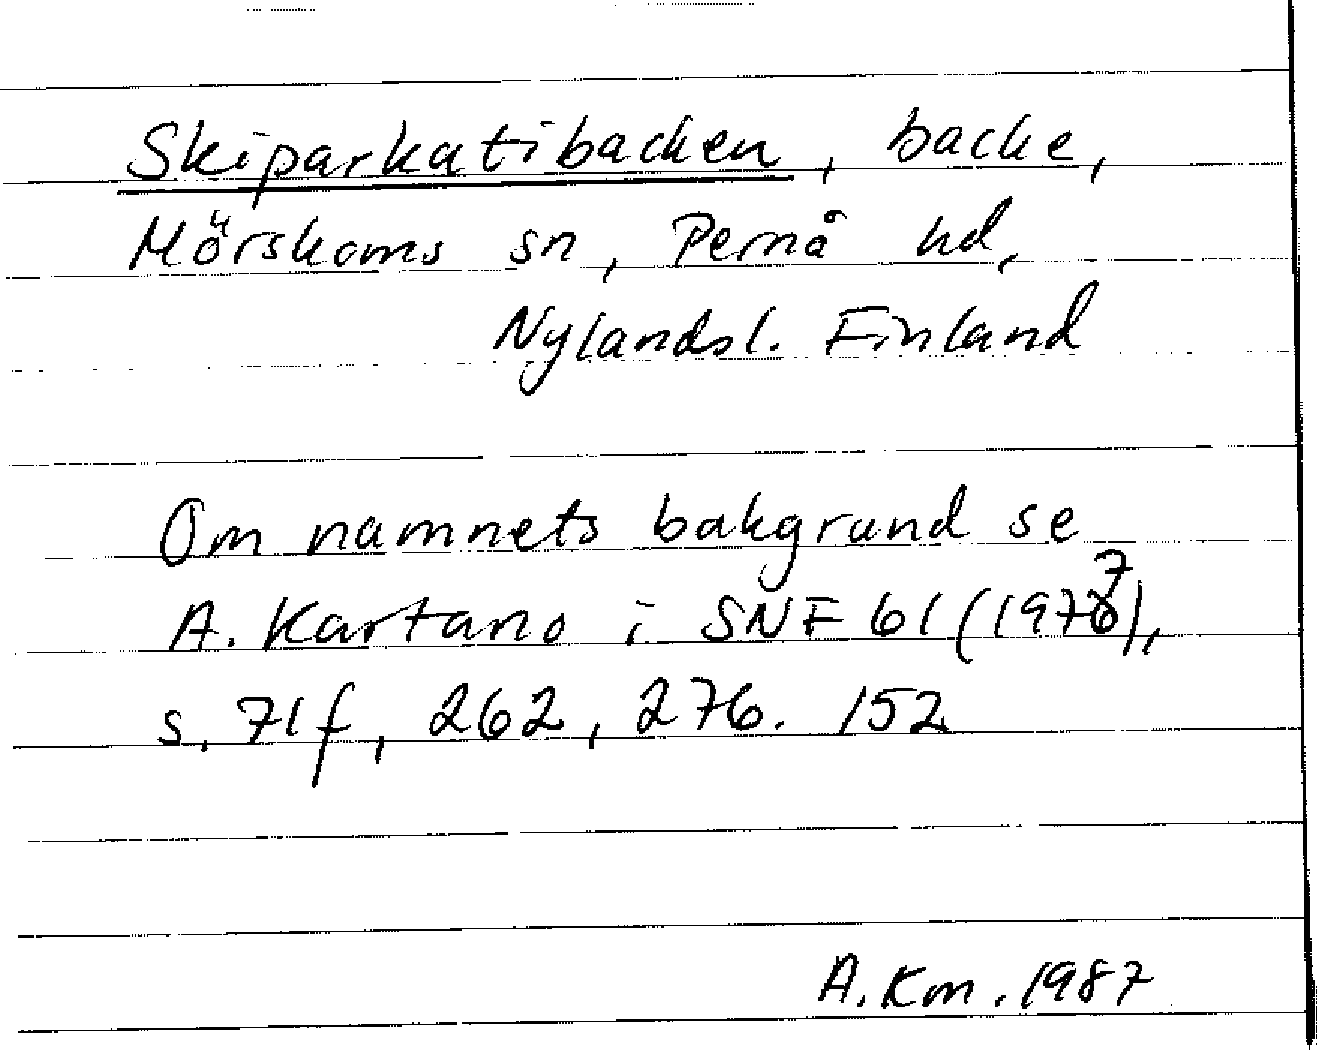 Skiparkatibacken, backe,
Mörskoms sn, Pernå hd,
Nylandsl. Finland
Om namnets bakgrund se
A. Kartano i SNF 61 (1977),
s. 71f, 262, 276. 152
A. Km. 1987